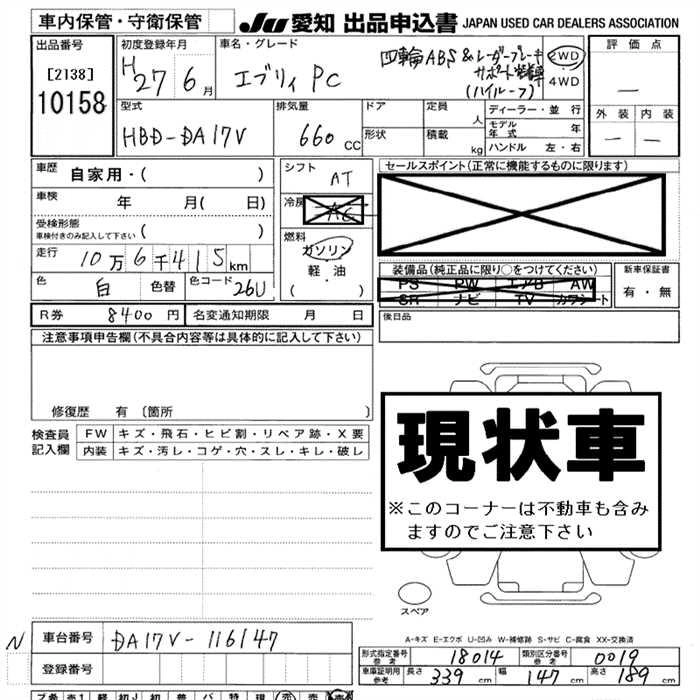 車内保管・守衛保管
JU 愛知 出品申込書 JAPAN USED CAR DEALERS ASSOCIATION
出品番号
[2138]
10158
初度登録年月
H27 6月
車名・グレード
エブリィ PC
四輪ABS&レーダーブレーキ
サポート装着車
(ハイルーフ)
2WD
4WD
評価点
—
外装 内装
— —
型式
HBD-DA17V
排気量
660 CC
ドア
形状
定員 人
積載 kg
ディーラー・並行
モデル年式 年
ハンドル 左・右
車歴
自家用・( )
車検
年 月( 日)
受検形態
車検付きのみ記入して下さい ( )
走行
10万6千415km
色 白 色替 色コード 26U
シフト
AT
冷房
AC
燃料
ガソリン
軽・油
( ・ )
セールスポイント(正常に機能するものに限ります)
装備品(純正品に限り○をつけてください)
PS PW エアB AW
SR ナビ TV カワシート
新車保証書
有・無
R券 8400円 名変通知期限 月 日
後日品
注意事項申告欄(不具合内容等は具体的に記入して下さい)
修復歴 有〔箇所 〕
検査員
記入欄
FW キズ・飛石・ヒビ割・リペア跡・X要
内装 キズ・汚レ・コゲ・穴・スレ・キレ・破レ
現状車
※このコーナーは不動車も含み
ますのでご注意下さい
スペア
A-キズ E-エクボ U-凹み W-補修跡 S-サビ C-腐食 XX-交換済
N
車台番号 DA17V-116147
登録番号
形式指定番号 参考 18014 類別区分番号 参考 0019
車庫証明用 参考 長さ 339cm 幅 147cm 高さ 189cm